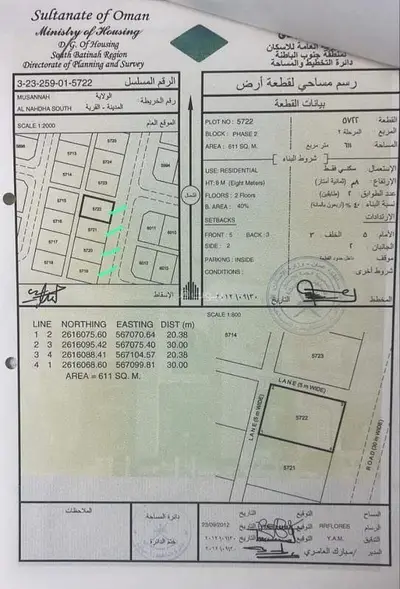 Sultanate of Oman
Ministry of Housing
D.G. Of Housing
South Batinah Region
Directorate of Planning and Survey
العامة للاسكان
بمنطقة جنوب الباطنة
دائرة التخطيط والمساحة
3-23-259-01-5722
الرقم المسلسل
MUSANNAH
الولاية
رقم الخريطة
AL NAHDHA SOUTH
المدينة - القرية
SCALE 1:2000
الموقع العام
رسم مساحي لقطعة أرض
بيانات القطعة
PLOT NO : 5722
٥٧٢٢
القطعة
BLOCK : PHASE 2
المرحلة ٢
المربع
AREA : 611 SQ. M.
٦١١ متر مربع
المساحة
شروط البناء
USE: RESIDENTIAL
سكني فقط
الإستعمال
HT: 8 M (Eight Meters)
٨م (ثمانية أمتار)
الإرتفاع
FLOORS : 2 Floors
٢ (طابقين)
عدد الطوابق
B. AREA : 40%
٤٠٪ (أربعون بالمائة)
نسبة البناء
SETBACKS
الإرتدادات
FRONT : 5 BACK : 3
الخلف ٣
الأمام ٥
SIDE : 2
٢
الجانبان
PARKING : INSIDE
موقف
CONDITIONS :
شروط أخرى
الإسقاط
٢٠١٢/٠٩/٣٠
التاريخ
المخطط
الشمال
5714
5715
5716
5717
5718
5722
5721
5720
5719
LINE NORTHING EASTING DIST (m)
1 2 2616075.60 567070.64 20.38
2 3 2616095.42 567075.40 30.00
3 4 2616088.41 567104.57 20.38
4 1 2616068.60 567099.81 30.00
AREA = 611 SQ. M.
SCALE 1:800
5714
5723
LANE (5 m WIDE)
LANE (5m WIDE)
5722
5721
ROAD (30 m WIDE)
الملاحظات
دائرة المساحة
ختم الدائرة
التاريخ
التوقيع
المساح
23/09/2012
التاريخ
التوقيع
RRFLORES
الرسام
التاريخ
التوقيع
Y.A.M.
التاريخ
مبارك العامري
المدير